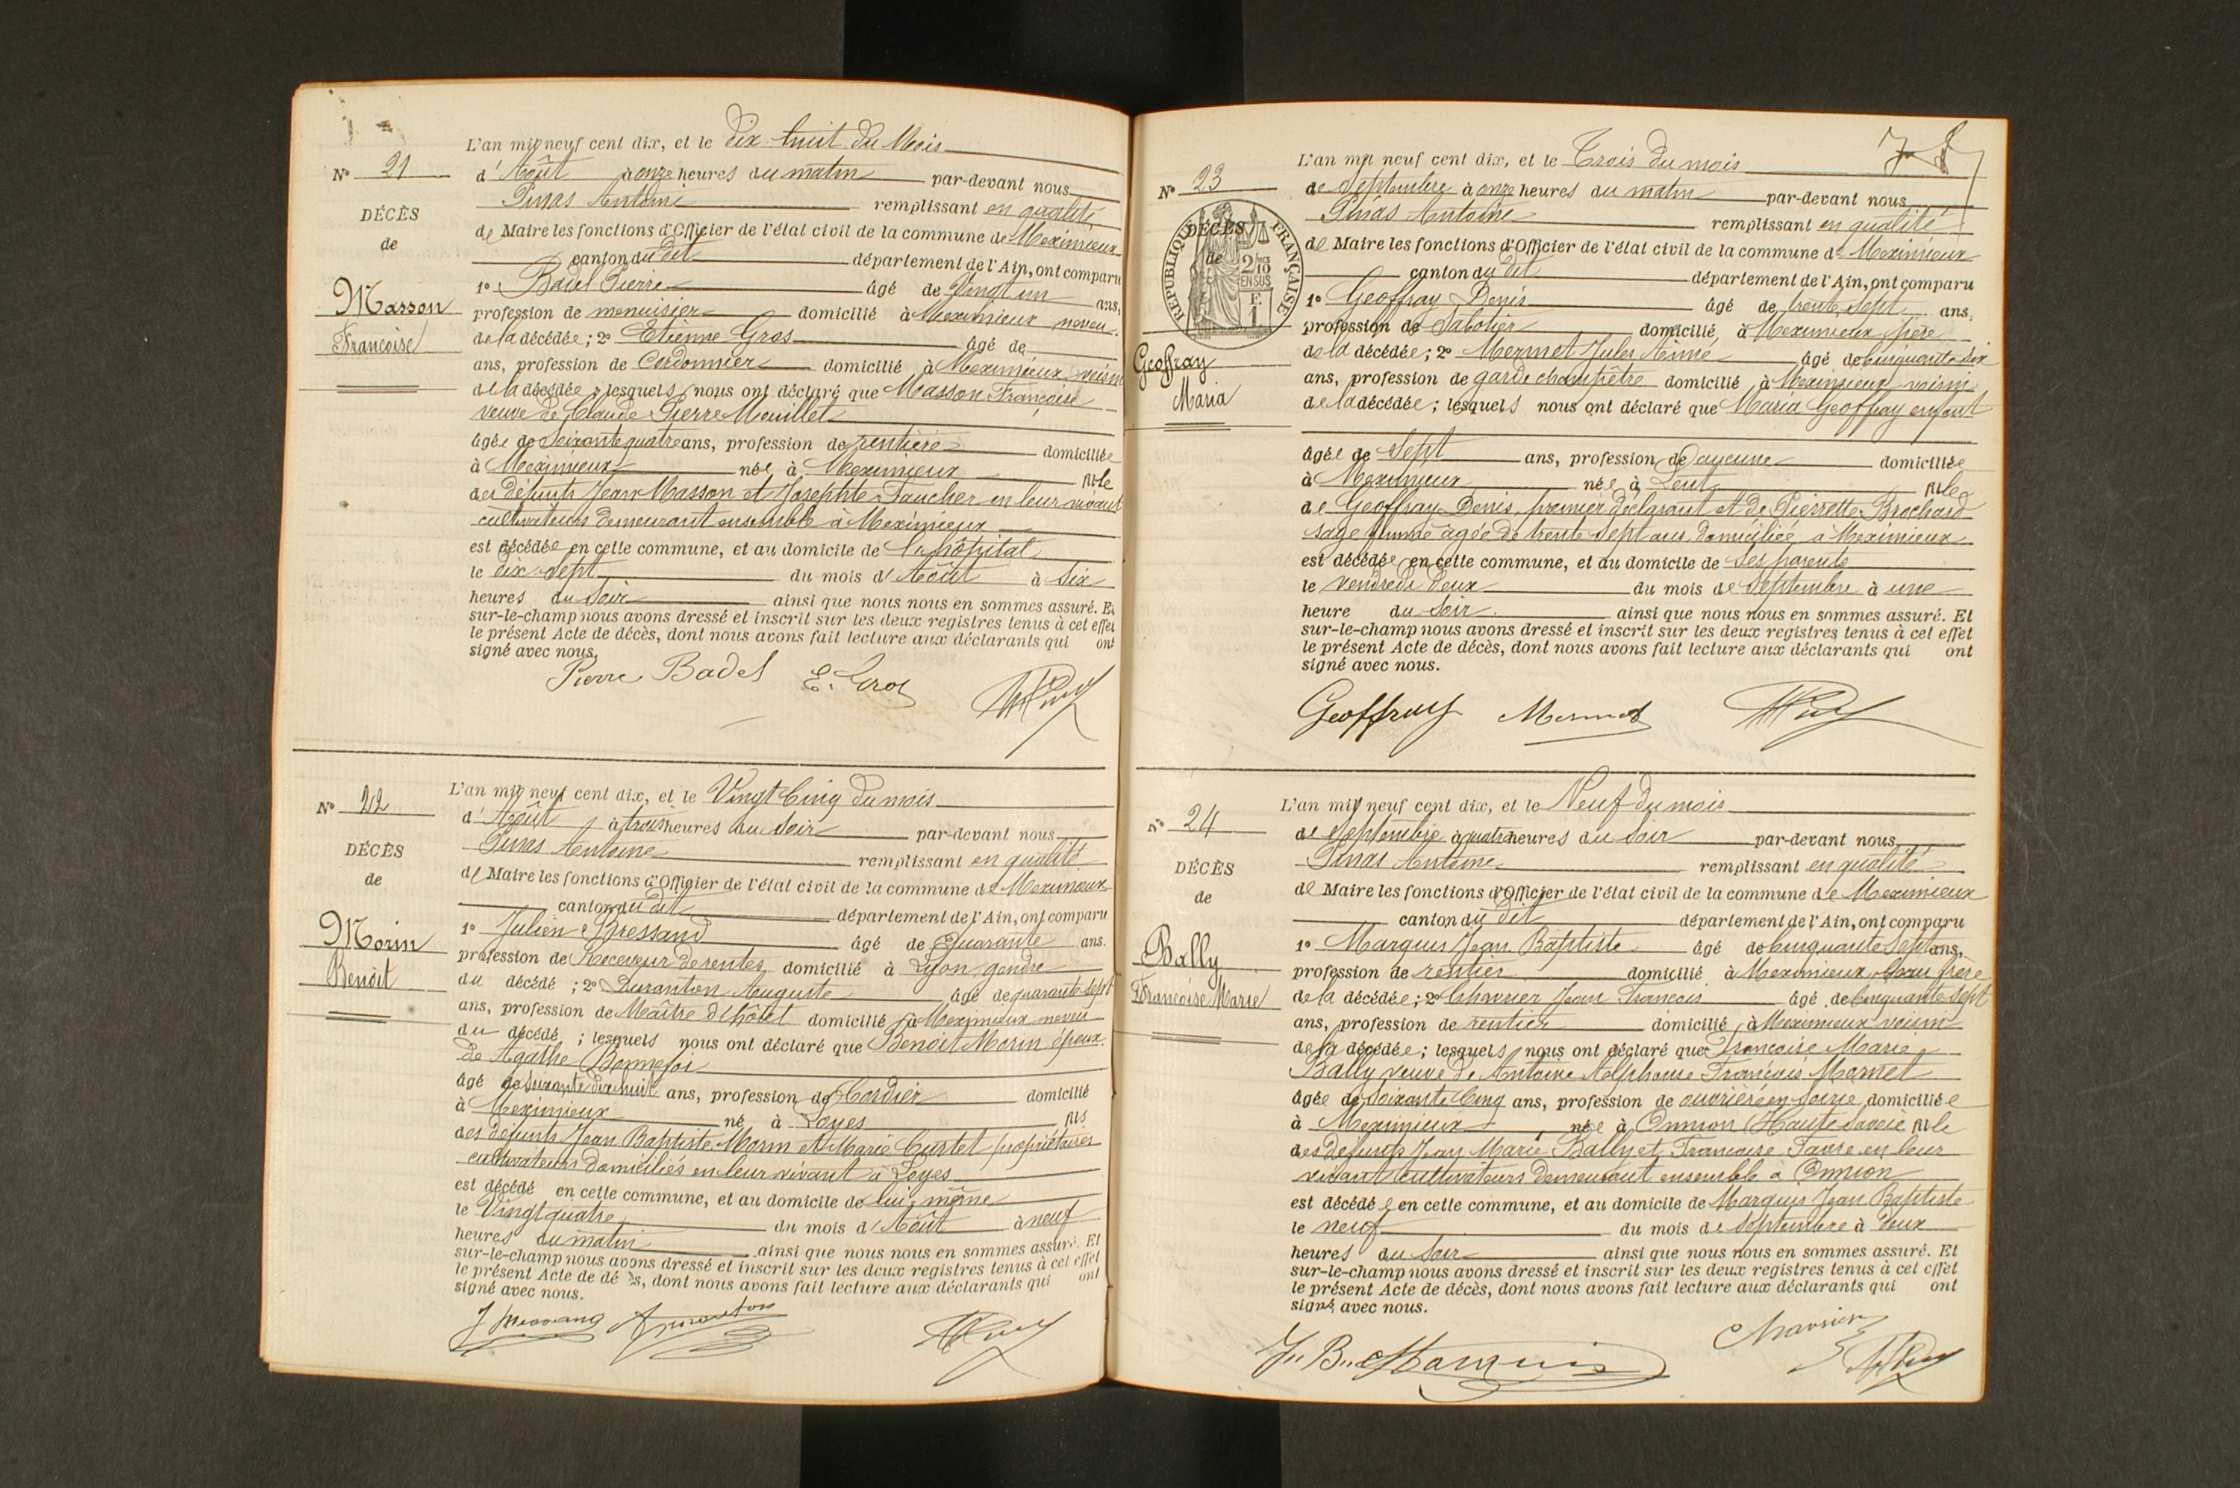 L'an mil neuf cent dix, et le dix-huit du Mois
N° 21
d'Août à onze heures du matin par-devant nous
Antoine remplissant en qualité
DÉCÈS
de Maire les fonctions d'Officier de l'état civil de la commune de Meximieux
de
canton du dit département de l'Ain, ont comparu
1° Badel Pierre âgé de Vingt un ans,
Masson
profession de menuisier domicilié à Meximieux neveu
Françoise
de la décédée ; 2° Etienne Gros âgé de
ans, profession de Cordonnier domicilié à Meximieux voisin
de la décédée ; lesquels nous ont déclaré que Masson Françoise
veuve de Claude Pierre Mouillet
âgée de Soixante quatre ans, profession de rentière domiciliée
à Meximieux née à Meximieux fille
des défunts Jean Masson et Josephte Faucher en leur vivant
cultivateurs demeurant ensemble à Meximieux
est décédée en cette commune, et au domicile de l'hôpital
le dix-sept du mois d'Août à Six
heures du Soir ainsi que nous nous en sommes assuré. Et
sur-le-champ nous avons dressé et inscrit sur les deux registres tenus à cet effet
le présent Acte de décès, dont nous avons fait lecture aux déclarants qui ont
signé avec nous.
Pierre Badel E. Gros
L'an mil neuf cent dix, et le Vingt Cinq du mois
N° 22
d'Août à trois heures du Soir par-devant nous
Antoine remplissant en qualité
DÉCÈS
de Maire les fonctions d'Officier de l'état civil de la commune de Meximieux
de
canton du dit département de l'Ain, ont comparu
1° Julien Bressand âgé de Quarante ans.
Morin
profession de Receveur de rentes domicilié à Lyon gendre
Benoit
du décédé ; 2° Duranton Auguste âgé de quarante-sept
ans, profession de Maître d'hôtel domicilié à Meximieux neveu
du décédé ; lesquels nous ont déclaré que Benoit Morin époux
de Agathe Bonnefoi
âgé de Soixante dix huit ans, profession de Cordier domicilié
à Meximieux né à Loyes fils
des défunts Jean Baptiste Morin et Marie Curtet propriétaires
cultivateurs domiciliés en leur vivant à Loyes
est décédé en cette commune, et au domicile de lui même
le Vingt quatre du mois d'Août à neuf
heures du matin ainsi que nous nous en sommes assuré. Et
sur-le-champ nous avons dressé et inscrit sur les deux registres tenus à cet effet
le présent Acte de décès, dont nous avons fait lecture aux déclarants qui ont
signé avec nous.
L'an mil neuf cent dix, et le Trois du mois
N° 23
de Septembre à onze heures du matin par-devant nous
Antoine remplissant en qualité
RÉPUBLIQUE FRANÇAISE
DÉCÈS
de Maire les fonctions d'Officier de l'état civil de la commune de Meximieux
de
canton du dit département de l'Ain, ont comparu
1° Geoffray Denis âgé de trente Sept ans,
profession de Sabotier domicilié à Meximieux père
Geoffray
de la décédée ; 2° Mermet Jules Aimé âgé de Cinquante six
Maria
ans, profession de garde champêtre domicilié à Meximieux voisin
de la décédée ; lesquels nous ont déclaré que Maria Geoffray enfant
âgée de Sept ans, profession de aucune domiciliée
à Meximieux née à Lent fille
de Geoffray Denis, premier déclarant et de Pierrette Brochard
sage femme âgée de trente Sept ans domiciliée à Meximieux
est décédée en cette commune, et au domicile de ses parents
le vendredi deux du mois de Septembre à une
heure du Soir ainsi que nous nous en sommes assuré. Et
sur-le-champ nous avons dressé et inscrit sur les deux registres tenus à cet effet
le présent Acte de décès, dont nous avons fait lecture aux déclarants qui ont
signé avec nous.
Geoffray Mermet
L'an mil neuf cent dix, et le Neuf du mois
N° 24
de Septembre à quatre heures du Soir par-devant nous
Antoine remplissant en qualité
DÉCÈS
de Maire les fonctions d'Officier de l'état civil de la commune de Meximieux
de
canton du dit département de l'Ain, ont comparu
1° Marquis Jean Baptiste âgé de Cinquante Sept ans,
Bally
profession de rentier domicilié à Meximieux beau frère
Françoise Marie
de la décédée ; 2° Charrier Jean François âgé de Cinquante Sept
ans, profession de rentier domicilié à Meximieux voisin
de la décédée ; lesquels nous ont déclaré que Françoise Marie
Bally veuve de Antoine Alphonse François Mornet
âgée de Soixante Cinq ans, profession de ouvrière en soierie domiciliée
à Meximieux née à Onnion (Haute Savoie) fille
des défunts Jean Marie Bally et Françoise Favre en leur
vivant cultivateurs demeurant ensemble à Onnion
est décédée en cette commune, et au domicile de Marquis Jean Baptiste
le neuf du mois de Septembre à deux
heures du Soir ainsi que nous nous en sommes assuré. Et
sur-le-champ nous avons dressé et inscrit sur les deux registres tenus à cet effet
le présent Acte de décès, dont nous avons fait lecture aux déclarants qui ont
signé avec nous.
Charrier
Jn Bte Marquis